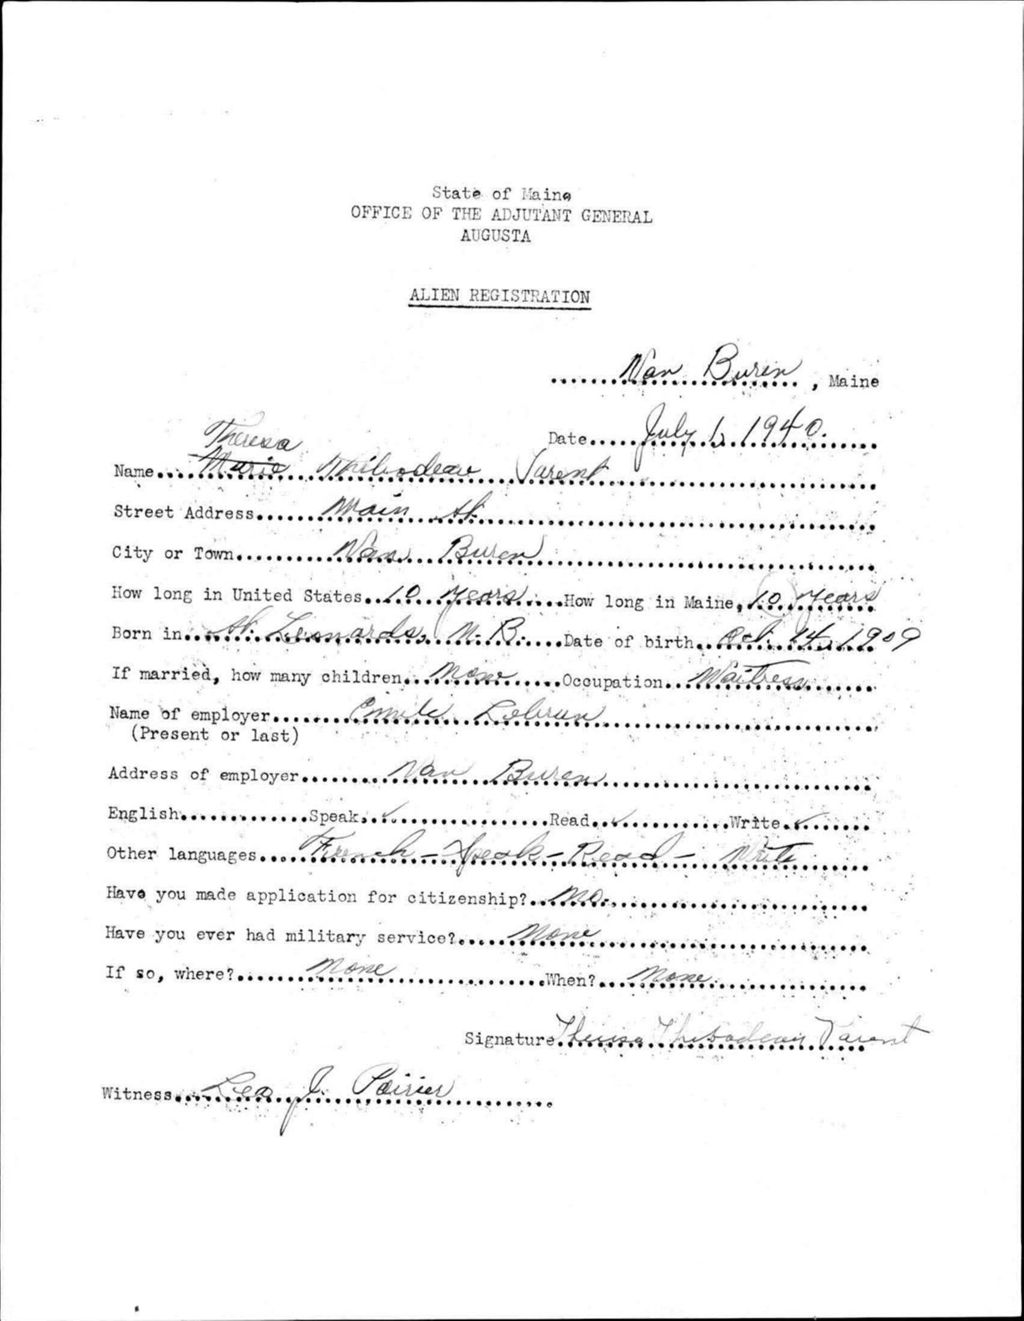 State of Maine
OFFICE OF THE ADJUTANT GENERAL
AUGUSTA
ALIEN REGISTRATION
Van Buren, Maine
Date July 1, 1940.
Theresa
Name Marie Thibodeau Parent
Street Address Main St.
City or Town Van Buren
How long in United States 10 years How long in Maine, 10 years
Born in St. Leonards, N. B. Date of birth Oct. 14, 1909
If married, how many children None Occupation Waitress
Name of employer Emile Lebrun
(Present or last)
Address of employer Van Buren
English Speak ✓ Read ✓ Write ✓
Other languages French - Speak - Read - Write
Have you made application for citizenship? No.
Have you ever had military service? None
If so, where? None When? None
Signature Theresa Thibodeau Parent
Witness Leo J. Poirier